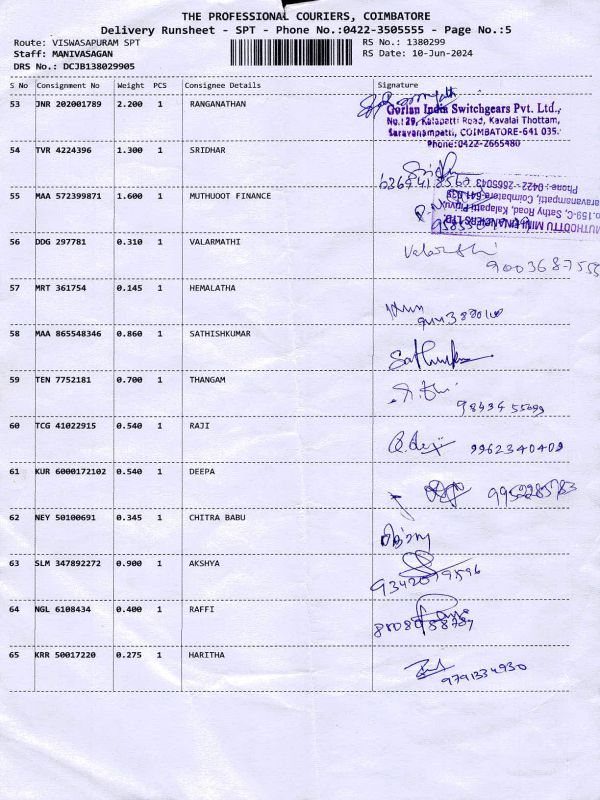 THE PROFESSIONAL COURIERS, COIMBATORE
Delivery Runsheet - SPT - Phone No.:0422-3505555 - Page No.:5
Route: VISWASAPURAM SPT
RS No.: 1380299
Staff: MANIVASAGAN
RS Date: 10-Jun-2024
DRS No.: DCJB138029905
S No Consignment No Weight PCS Consignee Details Signature
53 JNR 202001789 2.200 1 RANGANATHAN
Gorlan India Switchgears Pvt. Ltd.,
No.: 29, Kalapatti Road, Kavalai Thottam,
Saravanampatti, COIMBATORE-641 035.
Phone:0422-2665480
54 TVR 4224396 1.300 1 SRIDHAR
Sridhar
55 MAA 572399871 1.600 1 MUTHUOOT FINANCE
Phone : 0422 - 2665043
56 DDG 297781 0.310 1 VALARMATHI
Valarmathi
9003687555
57 MRT 361754 0.145 1 HEMALATHA
58 MAA 865548346 0.860 1 SATHISHKUMAR
59 TEN 7752181 0.700 1 THANGAM
60 TCG 41022915 0.540 1 RAJI
9962340409
61 KUR 6000172102 0.540 1 DEEPA
62 NEY 50100691 0.345 1 CHITRA BABU
63 SLM 347892272 0.900 1 AKSHYA
9342079596
64 NGL 6108434 0.400 1 RAFFI
65 KRR 50017220 0.275 1 HARITHA
9791334930